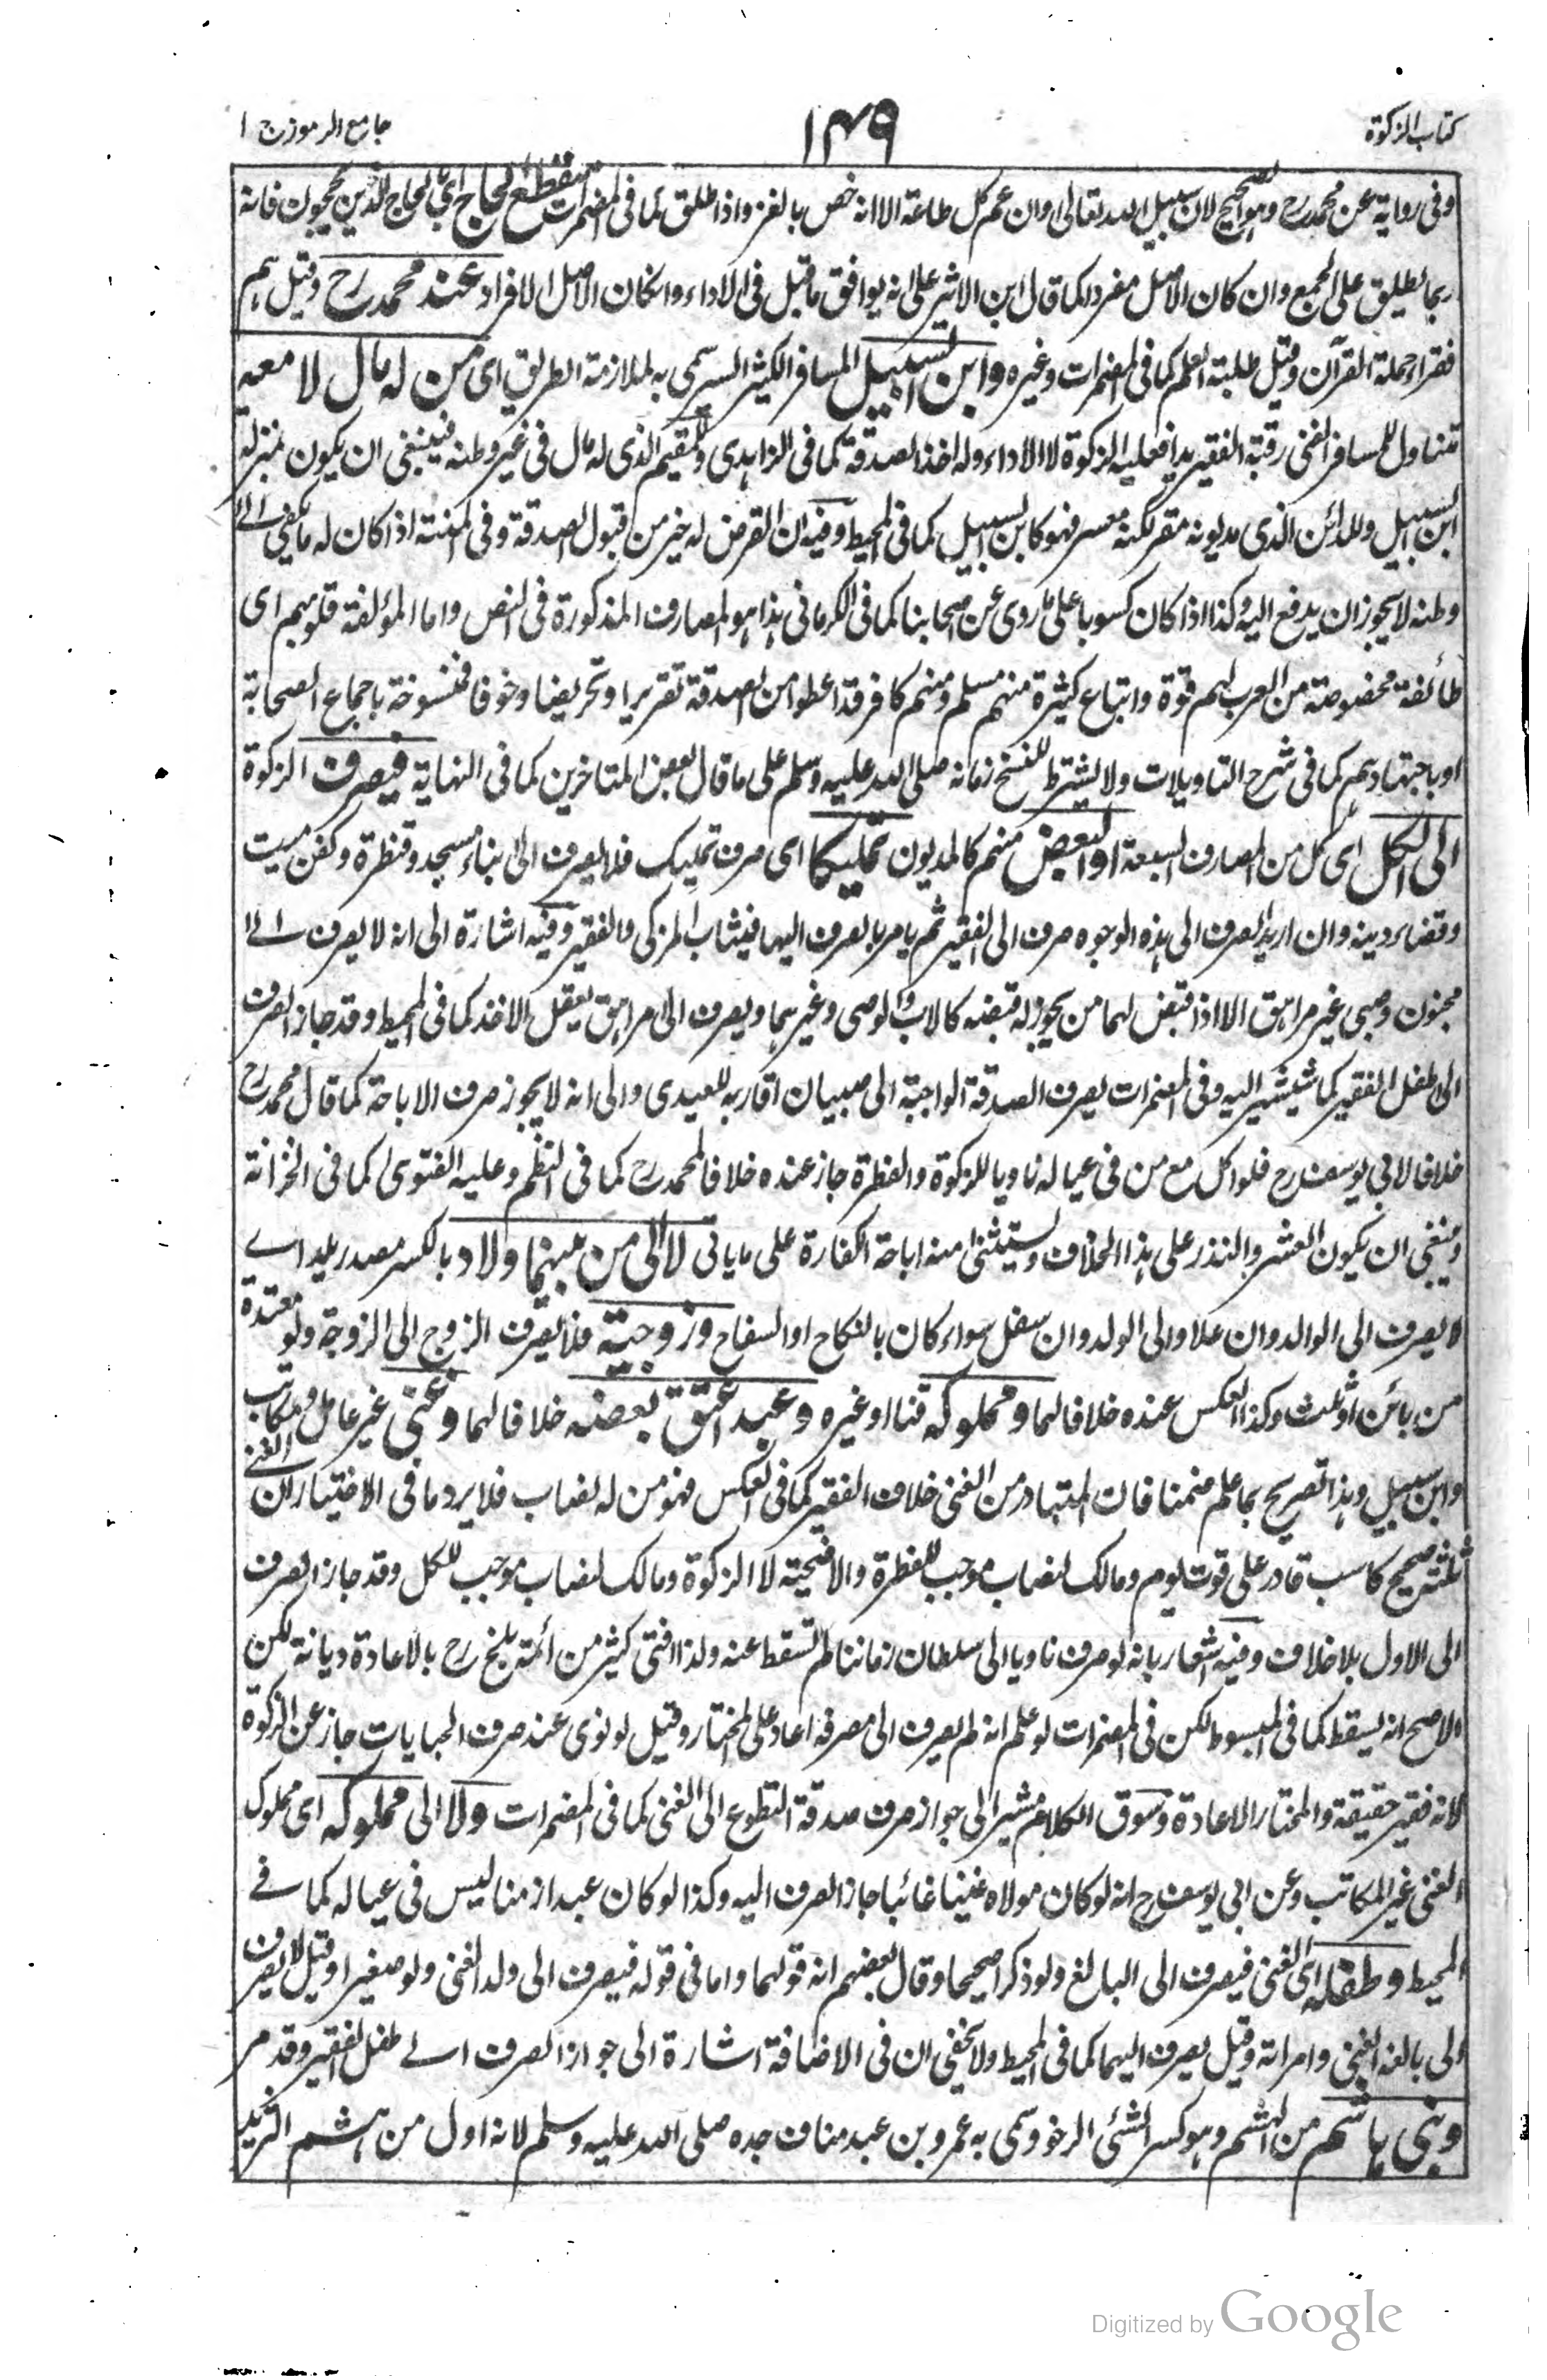 كتاب الزكوة
١٤٩
جامع الرموز ج ١
وفى رواية عن محمد رح وهو الصحيح لان سبيل الله تعالى وان عم كل طاعة الا انه خص بالغزو اذا طلق كما فى المضمرات منقطع الحاج اى بالحاج الذين يحجون فانه
ربما يطلق على الجمع وان كان الاصل مفردا كما قال ابن الاثير على انه يوافق ما قبل فى الاداء وان كان الاصل الافراد عند محمد رح وقيل هم
فقراء حملة القرآن وقيل طلبة العلم كما فى المضمرات وغيره وابن السبيل المسافر الكثير السير سمى به لملازمة الطريق اى من له مال لا معه
تتناول للمسافر الغنى رقبة الفقير يدا فعليه الزكوة لا الاداء وله اخذ الصدقة كما فى الزاهدى وللمقيم الذى له مال فى غير وطنه فينبغى ان يكون بمنزلة
ابن السبيل وللدائن الذى مديونه مقر لكنه معسر فهو كابن السبيل كما فى المحيط وفيه ان القرض له خير من قبول الصدقة وفى المنية اذا كان له ما يكفى الى
وطنه لا يجوز ان يدفع اليه وكذا اذا كان كسوبا على ما روى عن اصحابنا كما فى الكرمانى هذا هو المصارف المذكورة فى النص واما المؤلفة قلوبهم اى
طائفة مخصوصة من العرب لهم قوة واتباع كثيرة منهم مسلم ومنهم كافر قد اعطوا من الصدقة تقريرا وتحريضا وخوفا فمنسوخة باجماع الصحابة
او باجتهادهم كما فى شرح التاويلات ولا يشترط للنسخ زمانه صلى الله عليه وسلم على ما قال بعض المتاخرين كما فى النهاية فيصرف الزكوة
الى الكل اى كل من المصارف السبعة او البعض منهم كالمديون تمليكا اى صرف تمليك فلا يصرف الى بناء مسجد وقنظرة وكفن ميت
وقضاء دينه وان اريد الصرف الى هذه الوجوه صرف الى الفقير ثم يامر بالصرف اليها فيثاب المزكى والفقير وفيه اشارة الى انه لا يصرف الى
مجنون وصبى غير مراهق الا اذا قبض لهما من يجوز له قبضه كالاب والوصى وغيرهما ويصرف الى مراهق يعقل الاخذ كما فى المحيط وقد جاز الصرف
الى طفل الفقير كما سيشير اليه وفى المضمرات يصرف الصدقة الواجبة الى صبيان اقاربه للعيدى والى انه لا يجوز صرف الاباحة كما قال محمد رح
خلافا لابى يوسف رح فلو اكل مع من فى عياله ناويا للزكوة والفطرة جاز عنده خلافا لمحمد رح كما فى النظم وعليه الفتوى كما فى الخزانة
وينبغى ان يكون العشر والنذر على هذا الخلاف ويستثنى منه اباحة الكفارة على ما ياتى لا الى من بينهما ولاد بالكسر مصدر يلد اى
لا يصرف الى الوالد وان علا والى الولد وان سفل سواء كان بالنكاح او السفاح وزوجية فلا يصرف الزوج الى الزوجة ولو معتدة
من بائن او ثلث وكذا العكس عنده خلافا لهما ومملوكه قنا او غيره وعبد اعتق بعضه خلافا لهما وغنى غير عامل ومكاتب
وابن سبيل وهذا تصريح بما علم ضمنا فان المتبادر من الغنى خلاف الفقير كما فى العكس فهو من له نصاب فلا يرد ما فى الاختيار ان الغنى
ثلثة صحيح كاسب قادر على قوت يوم ومالك نصاب موجب للفطرة والاضحية لا الزكوة ومالك نصاب موجب للكل وقد جاز الصرف
الى الاول بلا خلاف وفيه اشعار بانه لو صرف ناويا الى سلطان زماننا لم تسقط عنه ولذا افتى كثير من ائمة بلخ رح بالاعادة ديانة لكن
الاصح انه يسقط كما فى المبسوط لكن فى المضمرات لو علم انه لم يصرف الى مصرفه اعاد على المختار وقيل لو نوى عند صرف الجبايات جاز عن الزكوة
لانه فقير حقيقة والمختار الاعادة وسوق الكلام مشير الى جواز صرف صدقة التطوع الى الغنى كما فى المضمرات ولا الى مملوكه اى مملوك
الغنى غير المكاتب وعن ابى يوسف رح انه لو كان مولاه غنيا غائبا جاز الصرف اليه وكذا لو كان عبدا زمنا ليس فى عياله كما فى
المحيط وطفله اى الغنى فيصرف الى البالغ ولو ذكرا صحيحا وقال بعضهم انه قولهما واما فى قوله فيصرف الى ولد الغنى ولو صغيرا وقيل لا يصرف
الى بالغة الغنى وامراته وقيل يصرف اليهما كما فى المحيط ولا يخفى ان فى الاضافة اشارة الى جواز الصرف الى طفل الفقير وقد مر
وبنى هاشم من الهشم وهو كسر الشئ الرخو وسمى به عمرو بن عبد مناف جده صلى الله عليه وسلم لانه اول من هشم الثريد
Digitized by Google